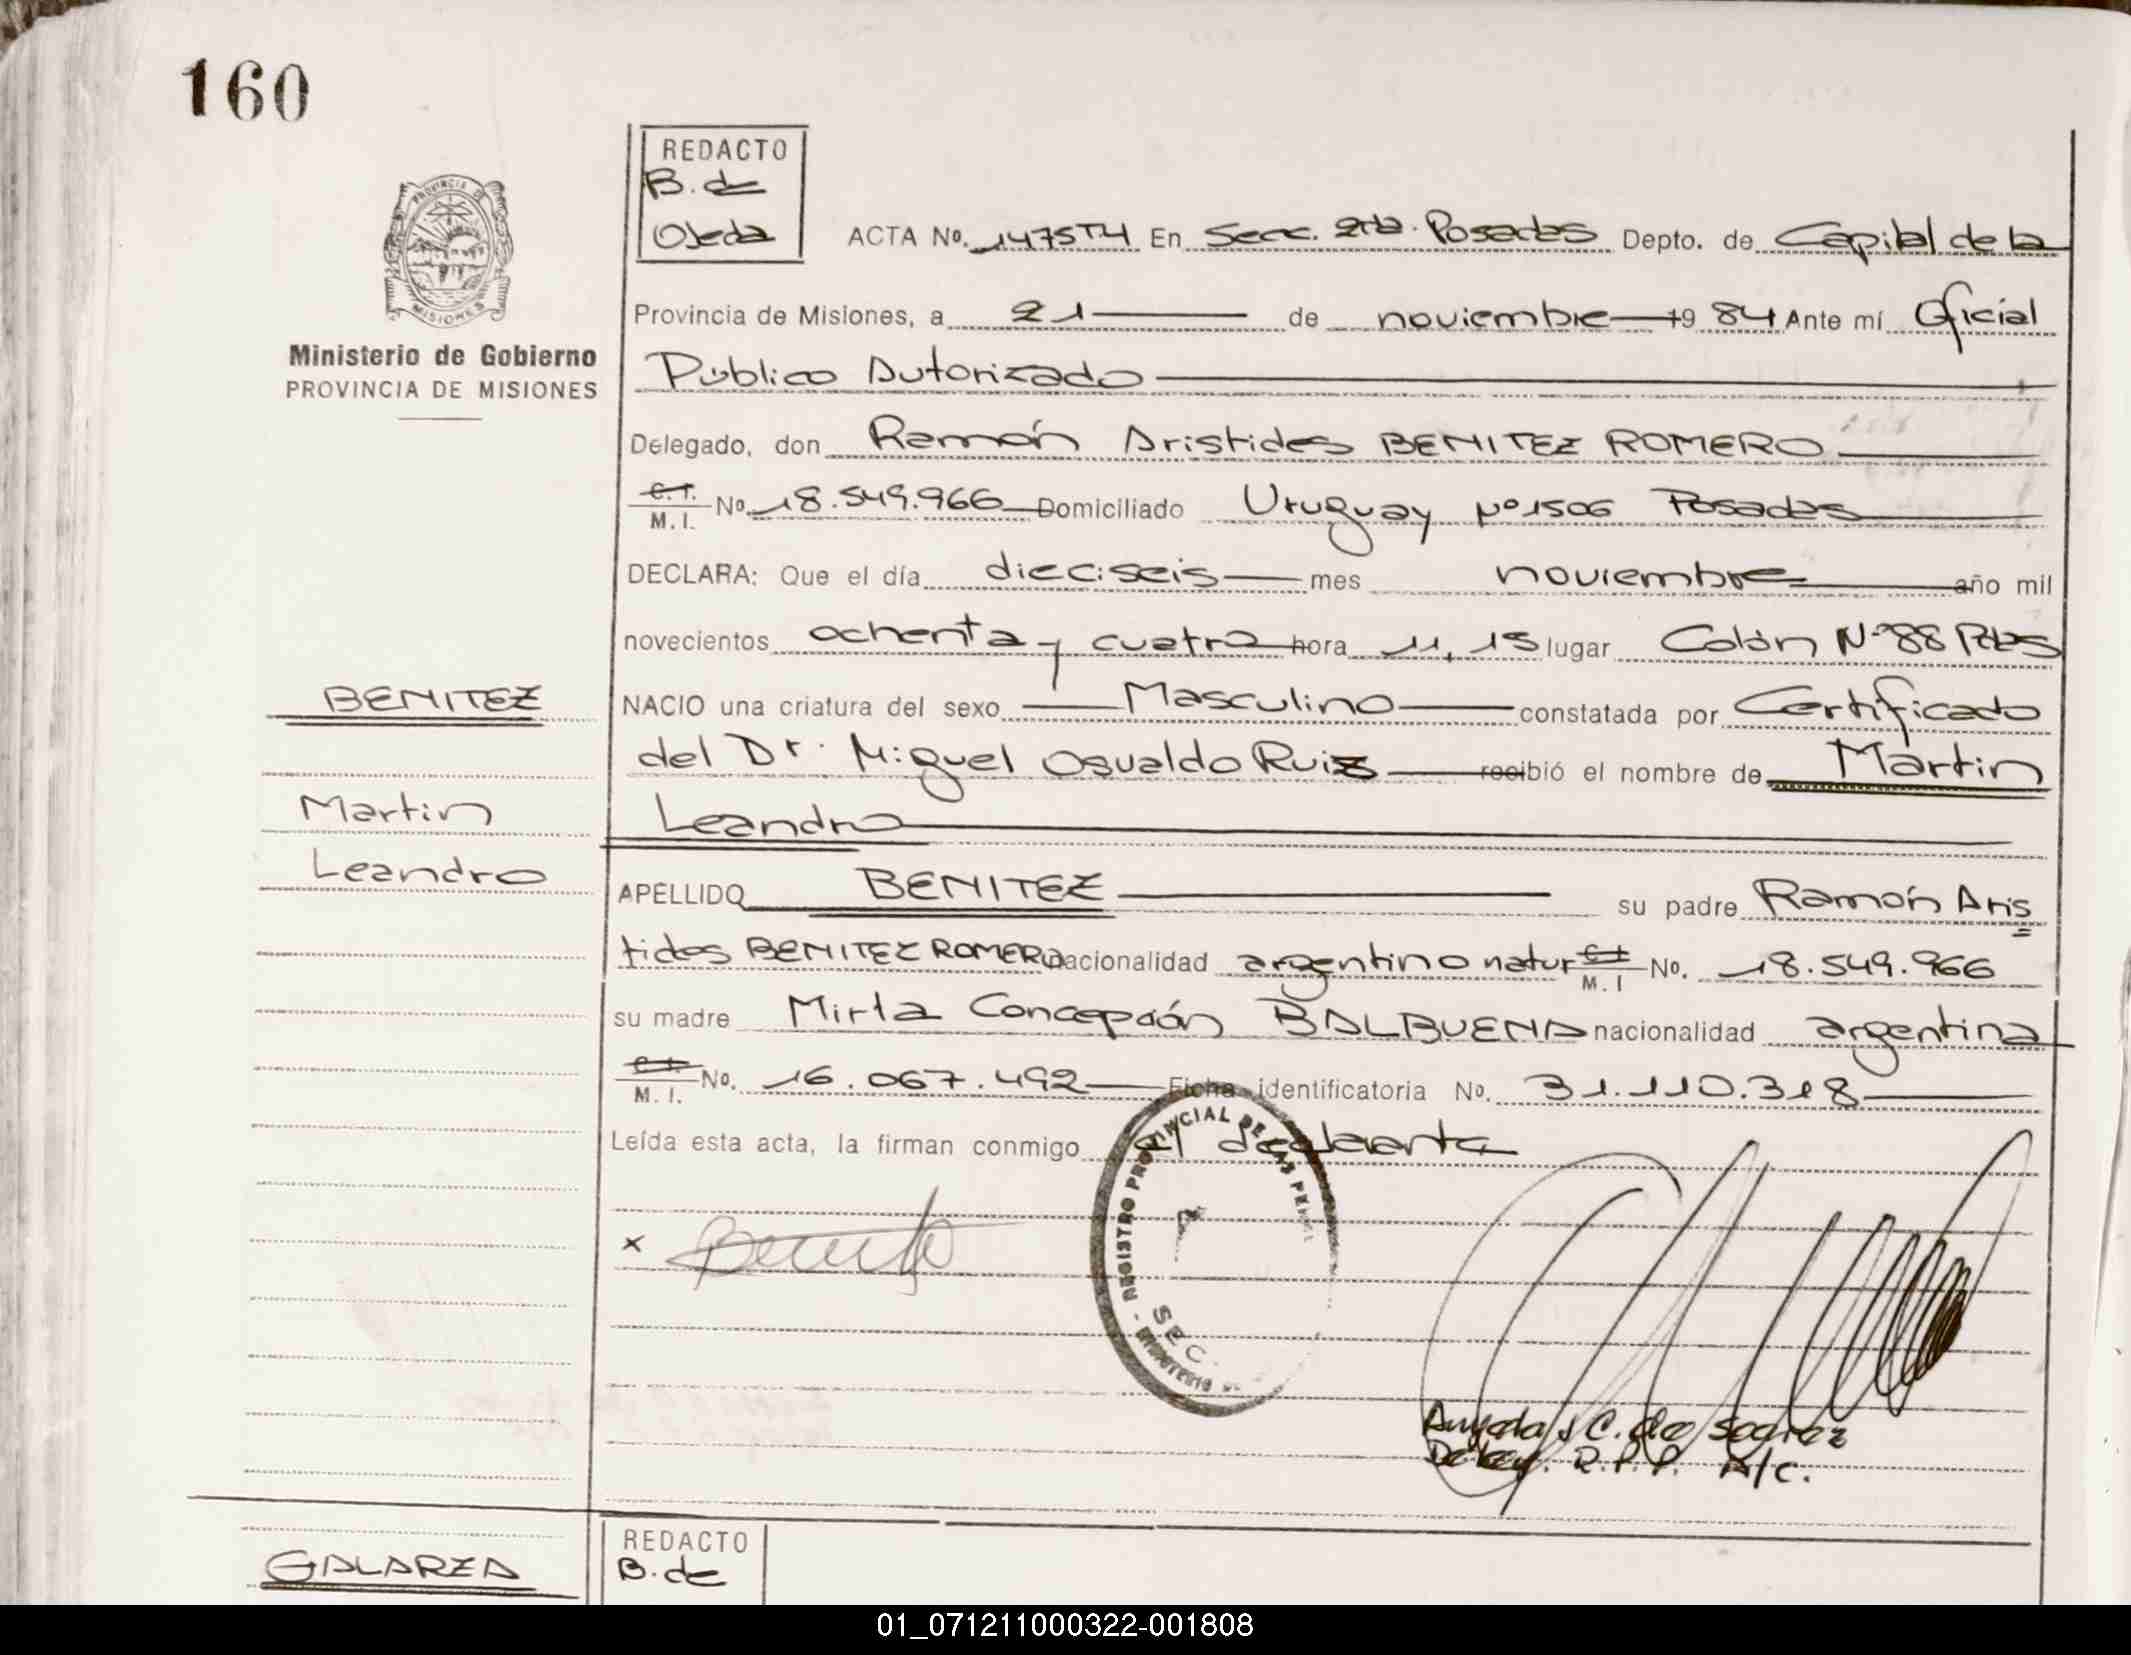 160
REDACTO
B. de
Ojeda
ACTA No. 1475T4 En Secc. 2da. Posadas Depto. de Capital de la
Provincia de Misiones, a 21 de noviembre 19 84 Ante mí Oficial
Público Autorizado
Delegado, don Ramón Aristides BENITEZ ROMERO
C.I.
M. I. No. 18.549.966 Domiciliado Uruguay Nº1506 Posadas
DECLARA: Que el día dieciseis mes noviembre año mil
novecientos ochenta y cuatro hora 11,15 lugar Colón Nº88 Pdas
NACIO una criatura del sexo Masculino constatada por Certificado
del Dr. Miguel Osvaldo Ruiz recibió el nombre de Martin
Leandro
APELLIDO BENITEZ su padre Ramón Aris
tides BENITEZ ROMERO nacionalidad argentino natur C.I.
M. I No. 18.549.966
su madre Mirta Concepción BALBUENA nacionalidad argentina
C.I.
M. I. No. 16.067.492 Ficha identificatoria No. 31.110.318
Leída esta acta, la firman conmigo el declarante
x Benitez
REGISTRO PROVINCIAL DE LAS PERSON
SEC.
MINISTERIO
C. de
R.P.P. A/C.
PROVINCIA DE
MISIONES
Ministerio de Gobierno
PROVINCIA DE MISIONES
BENITEZ
Martin
Leandro
GALARZA
REDACTO
B. de
01_071211000322-001808